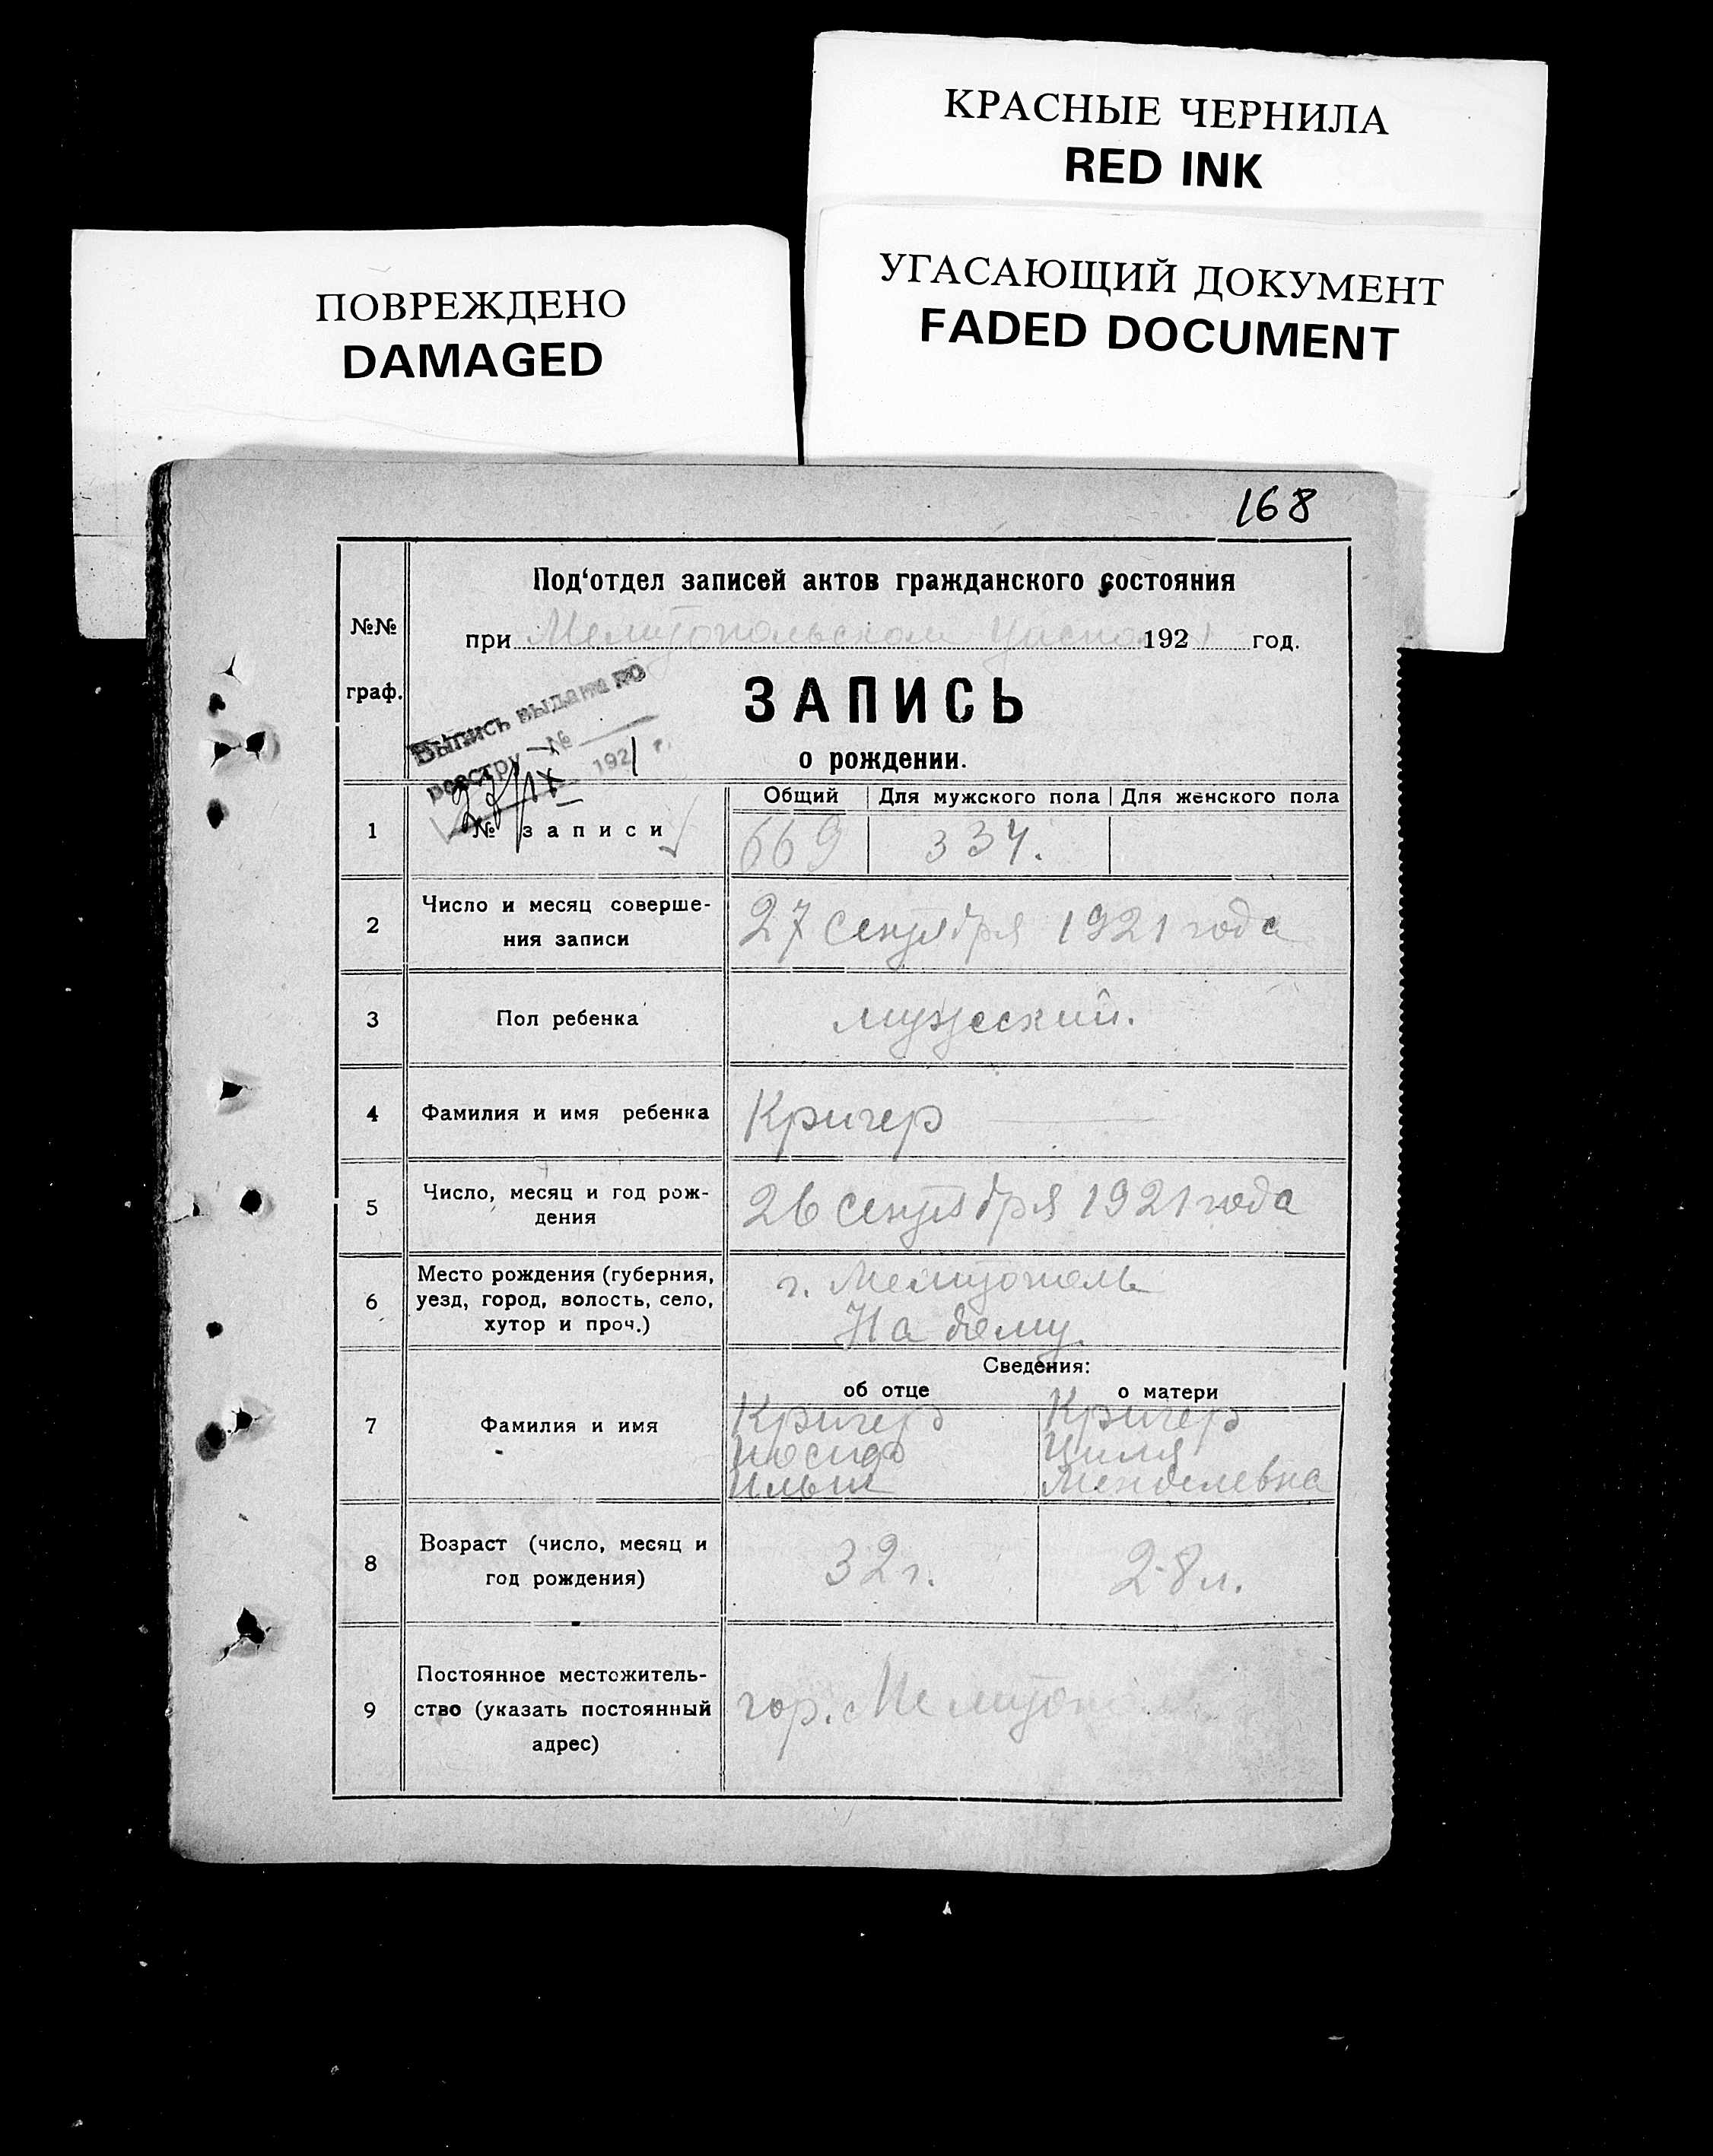 КРАСНЫЕ ЧЕРНИЛА
RED INK
УГАСАЮЩИЙ ДОКУМЕНТ
FADED DOCUMENT
ПОВРЕЖДЕНО
DAMAGED
168
Под'отдел записей актов гражданского состояния
№№
граф.
при Мелитопольском 1921 год.
ЗАПИСЬ
о рождении.
Выпись выдана по
реестру №
27/IX 1921 г.
Общий Для мужского пола Для женского пола
1 № записи 669 334.
2 Число и месяц соверше-
ния записи
27 сентября 1921 года
3 Пол ребенка мужеский.
4 Фамилия и имя ребенка Кригер
5 Число, месяц и год рож-
дения
26 сентября 1921 года
6 Место рождения (губерния,
уезд, город, волость, село,
хутор и проч.)
г. Мелитополь
На дому.
Сведения:
об отце о матери
7 Фамилия и имя
Кригер Кригер
Иосиф Циля
Ильич Менделевна
8 Возраст (число, месяц и
год рождения)
32 г. 28 л.
9 Постоянное местожитель-
ство (указать постоянный
адрес)
гор. Мелитополь